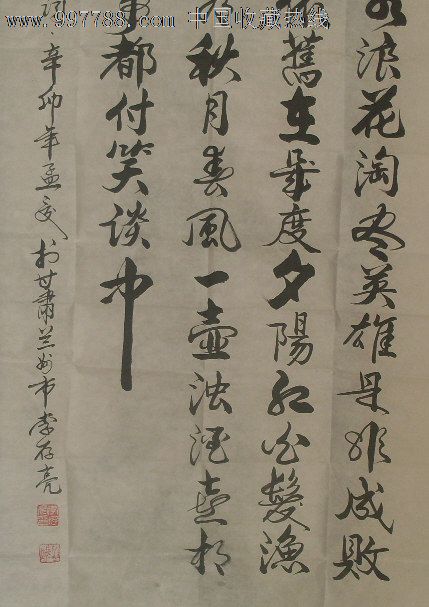 www.997788.com 中国收藏热线
浪花淘尽英雄是非成敗
舊在幾度夕陽紅白髮漁
秋月春風一壺濁酒喜相
事都付笑谈中
辛卯年孟夏於甘肅兰州市李存亮